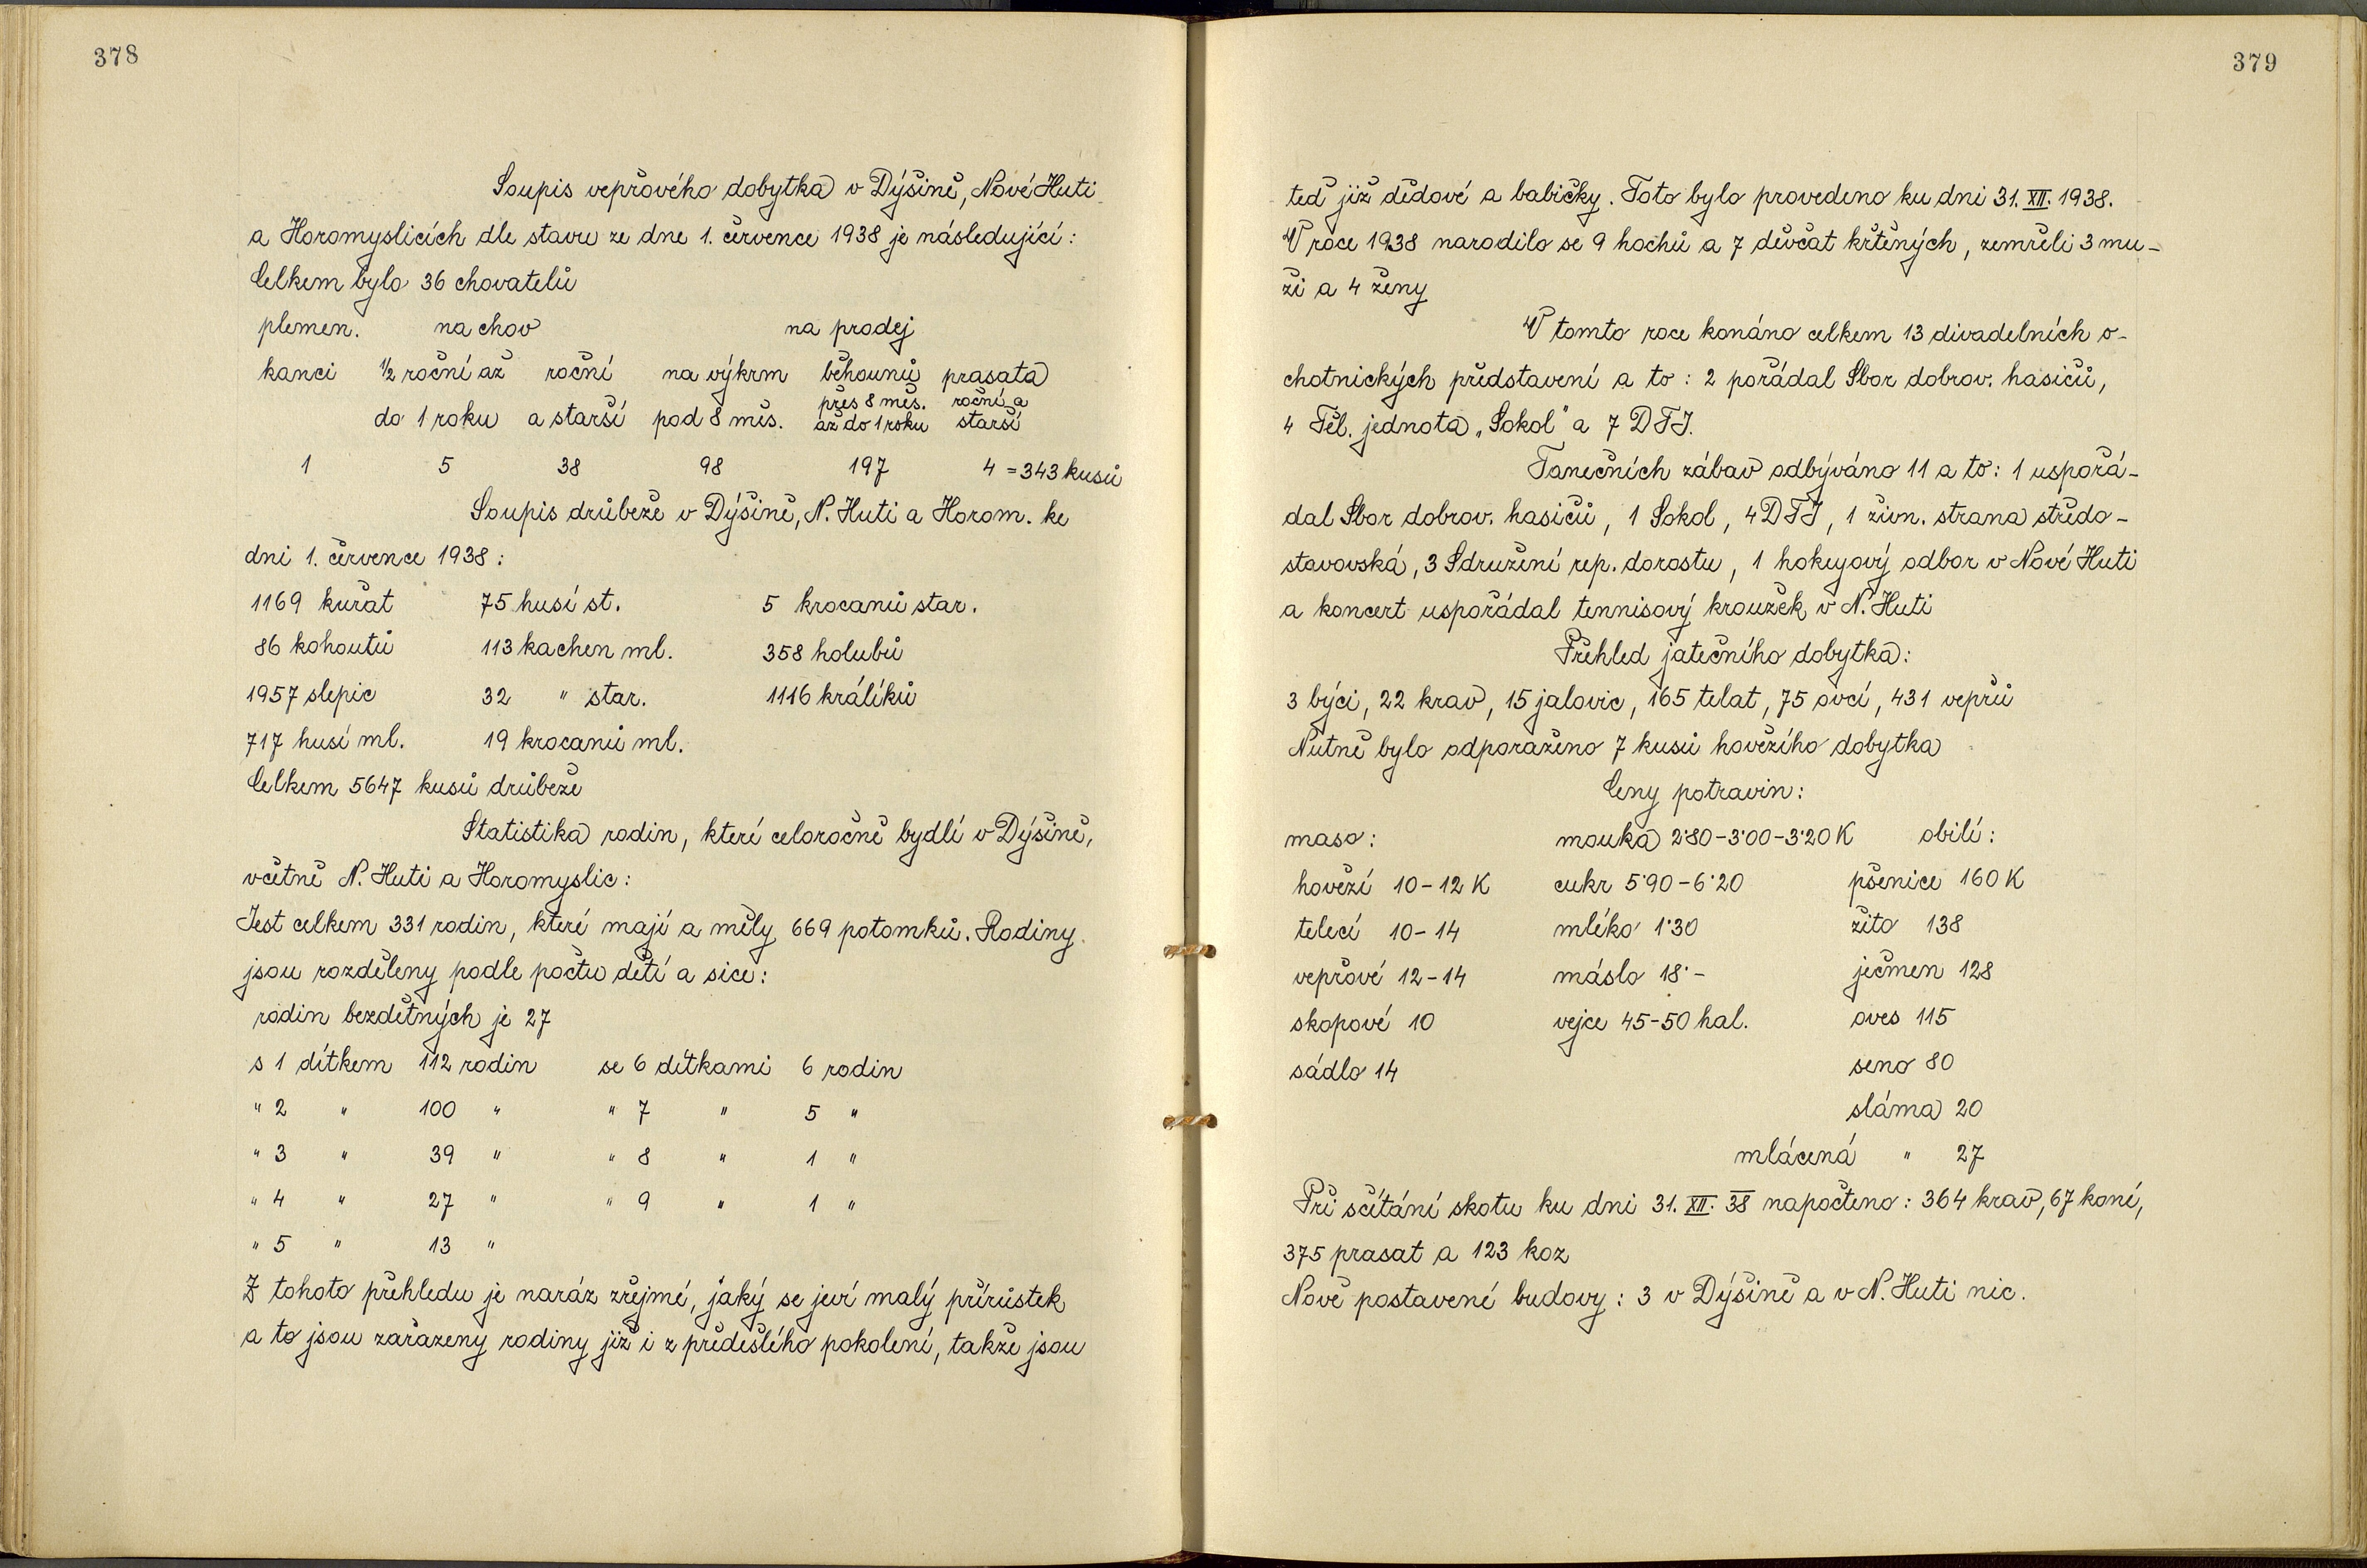 378
Soupis vepřového dobytka v Dýšině, Nové Huti
a Horomyslicích dle stavu ze dne 1. července 1938 je následující:
Celkem bylo 36 chovatelů
plemen. na chov na prodej
kanci ½ roční až roční na výkrm běhounů prasata
přes 8 měs. roční a
do 1 roku a starší pod 8 měs. až do 1 roku starší
1 5 38 98 197 4 = 343 kusů
Soupis drůbeže v Dýšině, N. Huti a Horom. ke
dni 1. července 1938:
1169 kuřat 75 husí st. 5 krocanů star.
86 kohoutů 113 kachen ml. 358 holubů
1957 slepic 32 " star. 1116 králíků
717 husí ml. 19 krocanů ml.
Celkem 5647 kusů drůbeže
Statistika rodin, které celoročně bydlí v Dýšině,
včetně N. Huti a Horomyslic:
Jest celkem 331 rodin, které mají a měly 669 potomků. Rodiny
jsou rozděleny podle počtu dětí a sice:
rodin bezdětných je 27
s 1 dítkem 112 rodin se 6 dítkami 6 rodin
" 2 " 100 " " 7 " 5 "
" 3 " 39 " " 8 " 1 "
" 4 " 27 " " 9 " 1 "
" 5 " 13 "
Z tohoto přehledu je naráz zřejmé, jaký se jeví malý přírůstek
a to jsou zařazeny rodiny již i z předešlého pokolení, takže jsou
379
teď již dědové a babičky. Toto bylo provedeno ku dni 31. XII. 1938.
V roce 1938 narodilo se 9 hochů a 7 děvčat křtěných, zemřeli 3 mu-
ži a 4 ženy
V tomto roce konáno celkem 13 divadelních o-
chotnických představení a to: 2 pořádal Sbor dobrov. hasičů,
4 Těl. jednota „Sokol" a 7 DTJ.
Tanečních zábav odbýváno 11 a to: 1 uspořá-
dal Sbor dobrov. hasičů, 1 Sokol, 4 DTJ, 1 živn. strana středo-
stavovská, 3 Sdružení rep. dorostu, 1 hokeyový odbor v Nové Huti
a koncert uspořádal tennisový kroužek v N. Huti
Přehled jatečního dobytka:
3 býci, 22 krav, 15 jalovic, 165 telat, 75 ovcí, 431 vepřů
Nutně bylo odporaženo 7 kusů hovězího dobytka
Ceny potravin:
maso: mouka 2˙80-3˙00-3˙20 K obilí:
hovězí 10-12 K cukr 5˙90-6˙20 pšenice 160 K
telecí 10-14 mléko 1˙30 žito 138
vepřové 12-14 máslo 18˙- ječmen 128
skopové 10 vejce 45-50 hal. oves 115
sádlo 14 seno 80
sláma 20
mlácená " 27
Při sčítání skotu ku dni 31. XII. 38 napočteno: 364 krav, 67 koní,
375 prasat a 123 koz
Nově postavené budovy: 3 v Dýšině a v N. Huti nic.